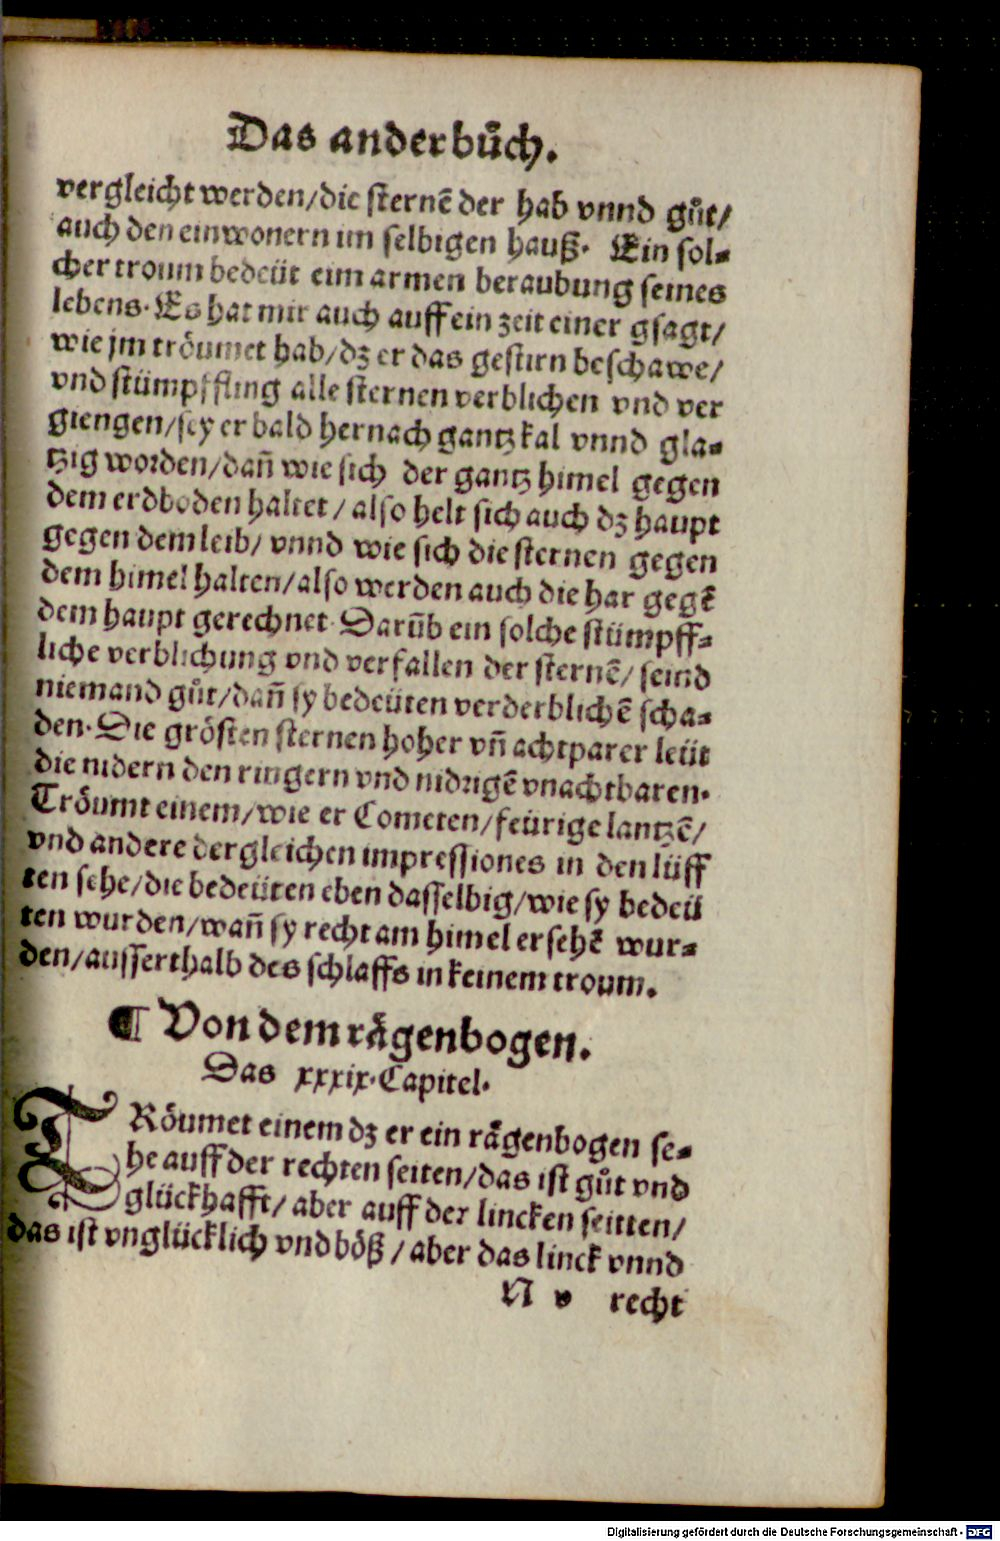 Das ander bůch.
vergleicht werden/die sternē der hab vnnd gůt/
auch den einwonern im selbigen hauß. Ein sol⸗
cher troum bedeüt eim armen beraubung seines
lebens. Es hat mir auch auff ein zeit einer gsagt/
wie jm tröumet hab/dz er das gestirn beschawe/
vnd stümpffling alle sternen verblichen vnd ver
giengen/sey er bald hernach gantz kal vnnd gla⸗
tzig worden/dañ wie sich der gantz himel gegen
dem erdboden haltet/also helt sich auch dz haupt
gegen dem leib/ vnnd wie sich die sternen gegen
dem himel halten/also werden auch die har gegē
dem haupt gerechnet. Darūb ein solche stümpff⸗
liche verblichung vnd verfallen der sternē/ seind
niemand gůt/dañ sy bedeüten verderblichē scha⸗
den. Die grösten sternen hoher vñ achtparer leüt
die nidern den ringern vnd nidrigē vnachtbaren.
Tröumt einem/wie er Cometen/feürige lantzē/
vnd andere dergleichen impressiones in den lüff
ten sehe/die bedeüten eben dasselbig/wie sy bedeü
ten wurden/wañ sy recht am himel ersehē wur⸗
den/ausserthalb des schlaffs in keinem troum.
¶ Von dem rägenbogen.
Das xxxix. Capitel.
TRöumet einem dz er ein rägenbogen se⸗
he auff der rechten seiten/das ist gůt vnd
glückhafft/ aber auff der lincken seitten/
das ist vnglücklich vnd böß/aber das linck vnnd
N v recht
Digitalisierung gefördert durch die Deutsche Forschungsgemeinschaft - DFG